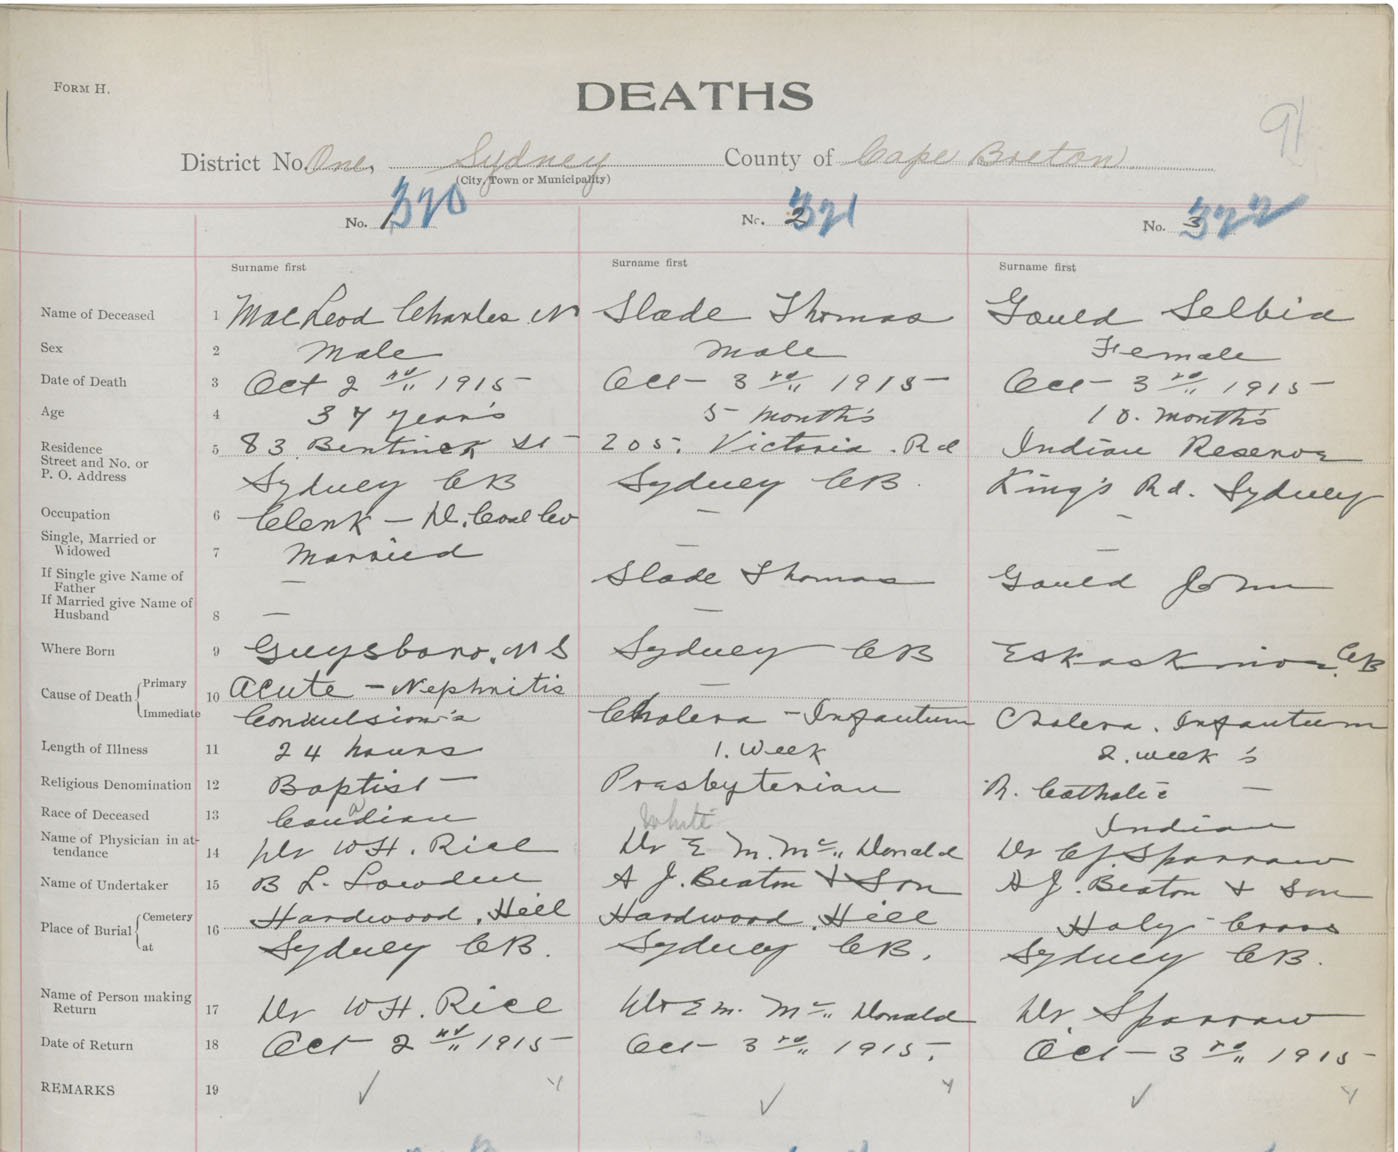 FORM H.
DEATHS
91
District No. One, Sydney County of Cape Breton
(City, Town or Municipality)
No. 1 320 No. 2 321 No. 3 322
Surname first Surname first Surname first
Name of Deceased 1 MacLeod Charles N Slade Thomas Gould Selbia
Sex 2 Male Male Female
Date of Death 3 Oct 2nd 1915 Oct 3rd 1915 Oct 3rd 1915
Age 4 37 year's 5 month's 10. month's
Residence 5 83 Bentinck St 205. Victoria. Rd Indian Reserve
Street and No. or
P. O. Address Sydney CB Sydney CB. King's Rd. Sydney
Occupation 6 Clerk - D. Coal Co — —
Single, Married or
Widowed 7 Married — —
If Single give Name of
Father — Slade Thomas Gould John
If Married give Name of
Husband 8 — —
Where Born 9 Guysboro, NS Sydney CB Eskasknion CB
Cause of Death Primary 10 Acute - Nephritis —
Immediate Convulsion's Cholera - Infantum Cholera. Infantum
Length of Illness 11 24 hours 1. Week 2. week's
Religious Denomination 12 Baptist Presbyterian R. Catholic
Race of Deceased 13 Canadian White Indian
Name of Physician in at-
tendance 14 Dr W H. Rice Dr E M. Mc Donald Dr C J. Sparrow
Name of Undertaker 15 B L. Lowden A J. Beaton & Son A J. Beaton & Son
Place of Burial Cemetery 16 Hardwood. Hill Hardwood. Hill Holy Cross
at Sydney CB. Sydney CB. Sydney CB.
Name of Person making
Return 17 Dr W H. Rice Dr E M. Mc Donald Dr. Sparrow
Date of Return 18 Oct 2nd 1915 Oct 3rd 1915. Oct 3rd 1915
REMARKS 19 ✓ ✓ ✓